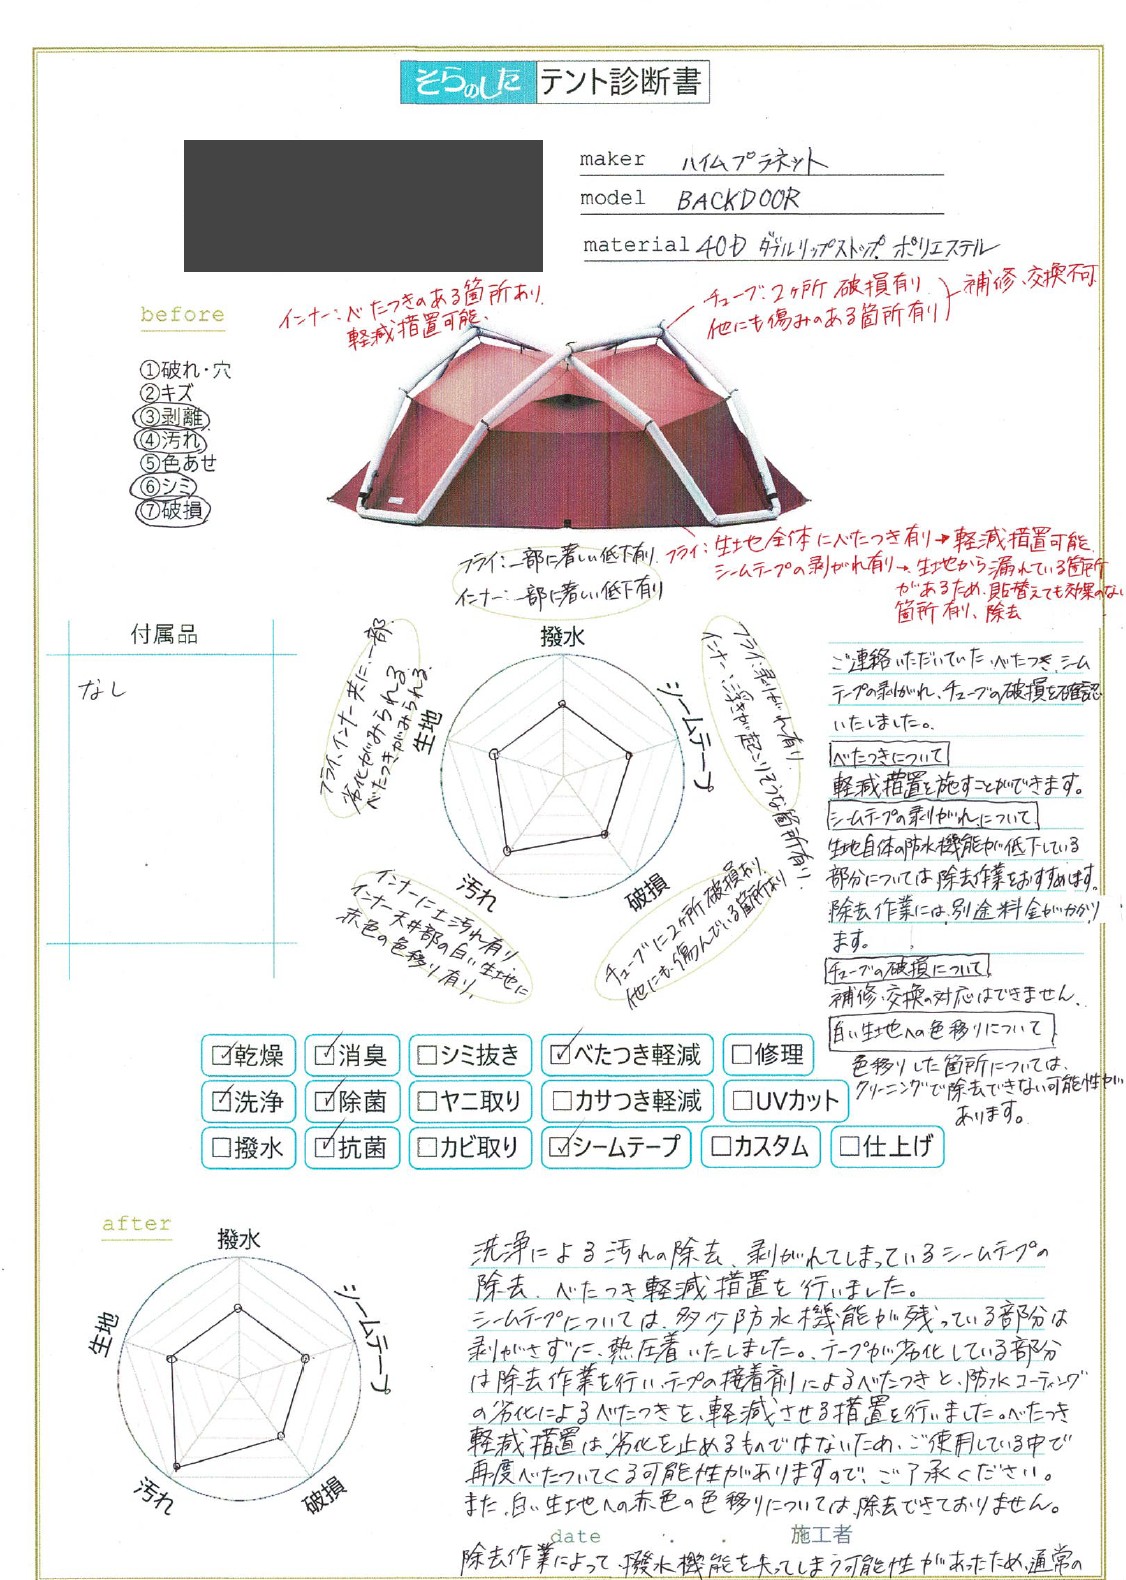 そらのした テント診断書
maker ハイムプラネット
model BACKDOOR
material 40D ダブルリップストップ ポリエステル
before
インナー:べたつきのある箇所あり、
軽減措置可能、
チューブ:2ヶ所 破損有り
他にも傷みのある箇所有り
補修、交換不可
①破れ・穴
②キズ
③剥離
④汚れ
⑤色あせ
⑥シミ
⑦破損
フライ:生地全体にべたつき有り→軽減措置可能、
シームテープの剥がれ有り→生地から漏れている箇所
があるため、貼替えても効果のない
箇所有り、除去
フライ:一部に著しい低下有り、
インナー:一部に著しい低下有り
付属品
なし
撥水
シームテープ
破損
汚れ
生地
フライ、インナー共に、一部、
劣化がみられる
べたつきがみられる
フライ:剥がれ有り、
インナー:浮きが起こりそうな箇所有り、
チューブに2ヶ所破損有り、
他にも傷んでいる箇所あり
インナーに土汚れ有り
インナー天井部の白い生地に
赤色の色移り有り、
ご連絡いただいていた、べたつき、シーム
テープの剥がれ、チューブの破損を確認
いたしました。
べたつきについて
軽減措置を施すことができます。
シームテープの剥がれについて
生地自体の防水機能が低下している
部分については除去作業をおすすめします。
除去作業には、別途料金がかかり
ます。
チューブの破損について
補修、交換の対応はできません、
白い生地への色移りについて
色移りした箇所については、
クリーニングで除去できない可能性が
あります。
☑乾燥 ☑消臭 □シミ抜き ☑べたつき軽減 □修理
☑洗浄 ☑除菌 □ヤニ取り □カサつき軽減 □UVカット
□撥水 ☑抗菌 □カビ取り ☑シームテープ □カスタム □仕上げ
after
撥水
シームテープ
破損
汚れ
生地
洗浄による汚れの除去、剥がれてしまっているシームテープの
除去、べたつき軽減措置を行いました。
シームテープについては、多少防水機能が残っている部分は
剥がさずに、熱圧着いたしました。テープが劣化している部分
は除去作業を行い、テープの接着剤によるべたつきと、防水コーティング
の劣化によるべたつきを、軽減させる措置を行いました。べたつき
軽減措置は劣化を止めるものではないため、ご使用している中で
再度べたついてくる可能性がありますので、ご了承ください。
また、白い生地への赤色の色移りについては、除去できておりません。
date . . 施工者
除去作業によって、撥水機能を失ってしまう可能性があったため、通常の